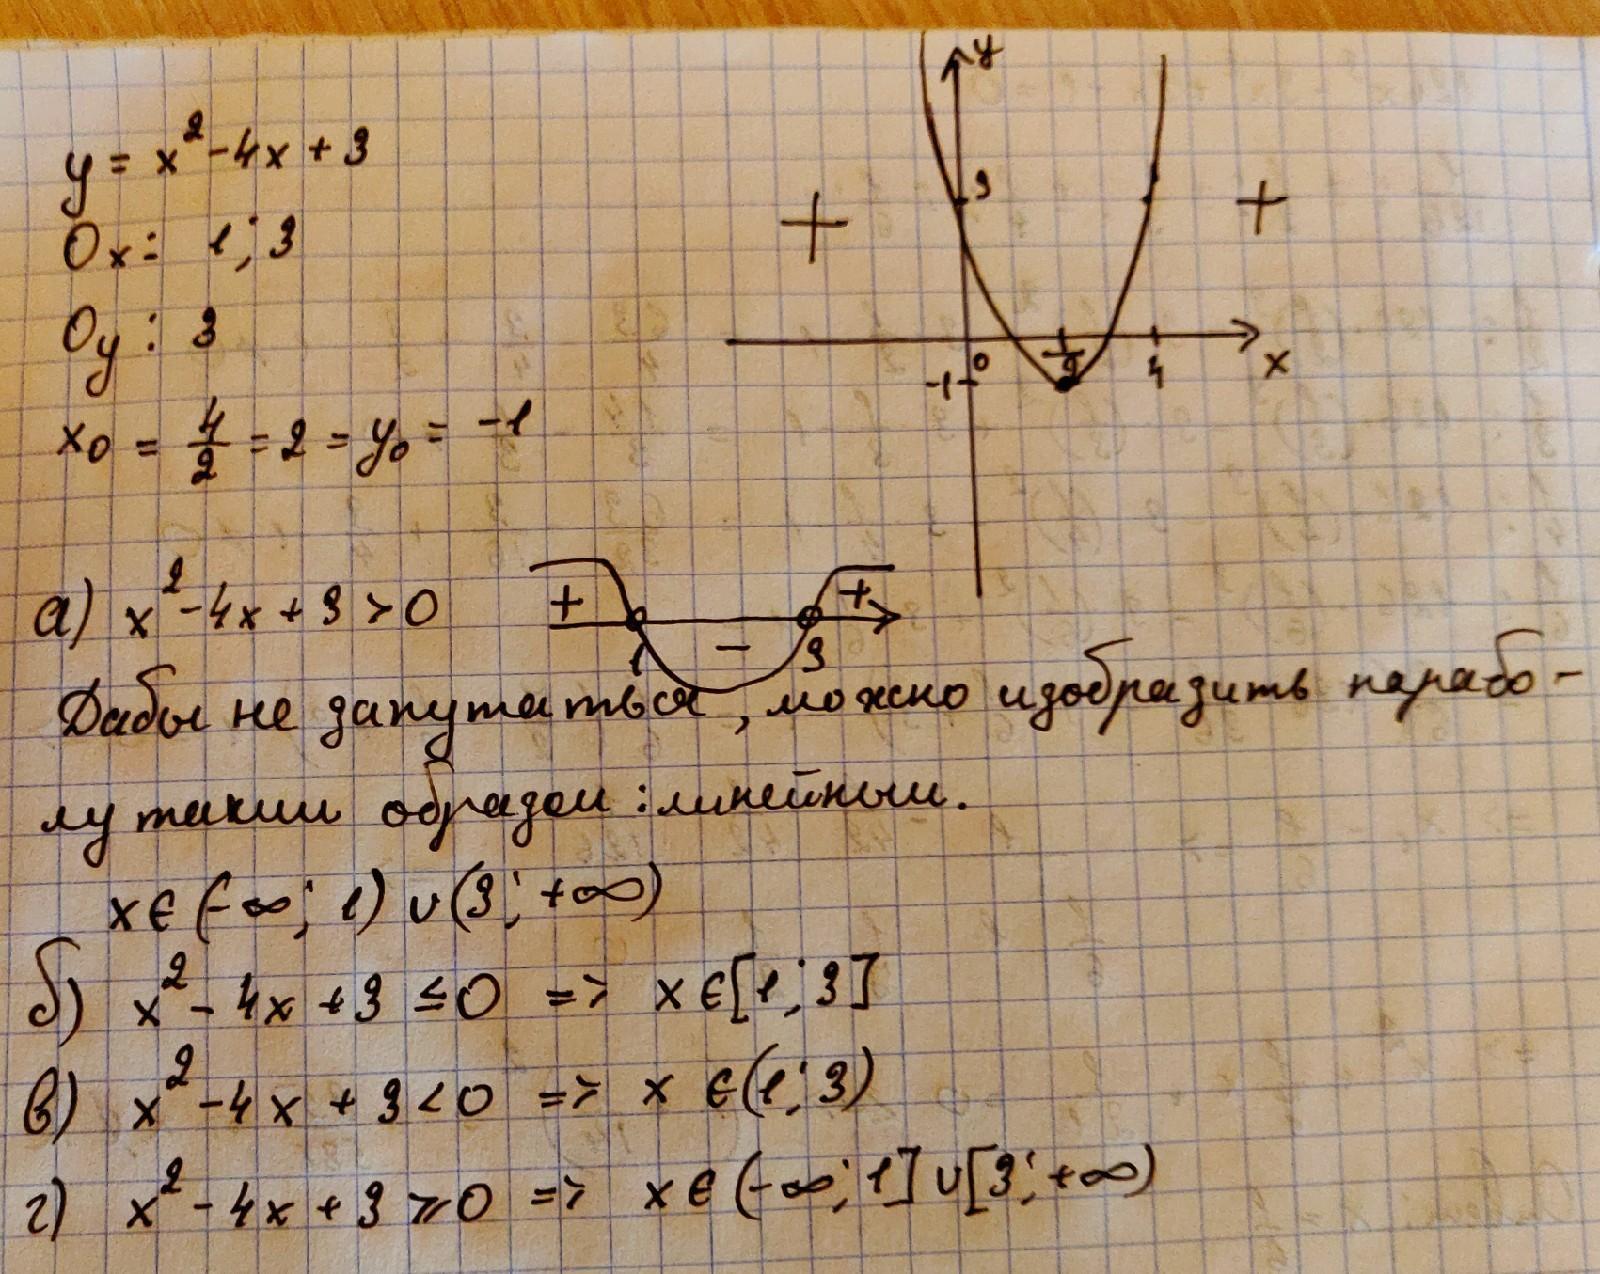 y = x² - 4x + 3
Ox: 1; 3
Oy: 3
x₀ = 4/2 = 2 = y₀ = -1
y
3
+ +
-1 0 2 4 x
а) x² - 4x + 3 > 0
+ - +
1 3
Дабы не запутаться, можно изобразить парабо-
лу таким образом: линейным.
x ∈ (-∞; 1) ∪ (3; +∞)
б) x² - 4x + 3 ≤ 0 => x ∈ [1; 3]
в) x² - 4x + 3 < 0 => x ∈ (1; 3)
г) x² - 4x + 3 ⩾ 0 => x ∈ (-∞; 1] ∪ [3; +∞)